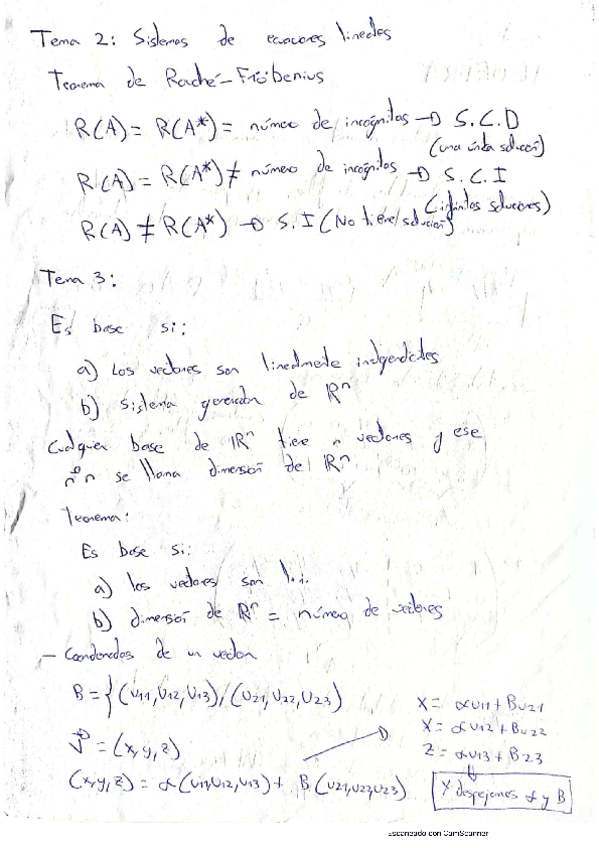 Tema 2: Sistemas de ecuaciones lineales
Teorema de Rouché-Fröbenius
R(A) = R(A*) = número de incógnitas → S.C.D
(una única solución)
R(A) = R(A*) ≠ número de incógnitas → S.C.I
(infinitas soluciones)
R(A) ≠ R(A*) → S.I (No tiene solución)
Tema 3:
Es base si:
a) Los vectores son linealmente independientes
b) sistema generador de ℝⁿ
Cualquier base de ℝⁿ tiene n vectores y ese
nº n se llama dimensión de ℝⁿ
Teorema:
Es base si:
a) los vectores son l.i.
b) dimensión de ℝⁿ = número de vectores
- Coordenadas de un vector
B = {(U11, U12, U13), (U21, U22, U23)
V = (x, y, z)
(x, y, z) = α(U11, U12, U13) + B(U21, U22, U23)
X = αU11 + BU21
X = αU12 + BU22
Z = αU13 + B23
Y despejamos α y B
Escaneado con CamScanner